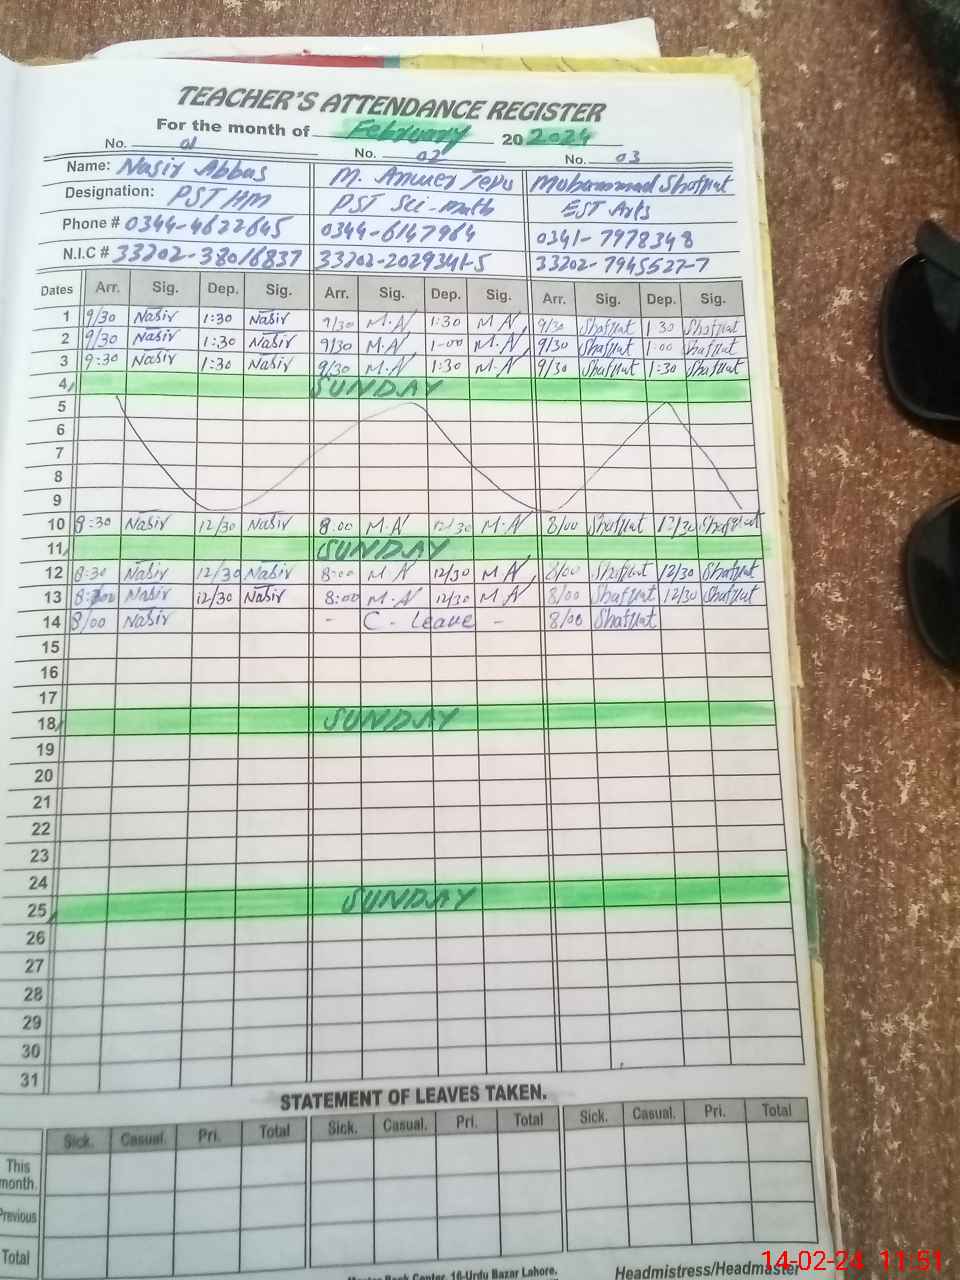 TEACHER'S ATTENDANCE REGISTER
For the month of February 20 2024
No. 01 No. 02 No. 03
Name: Nasir Abbas M. Anwer Tepu Mohammad Shafqat
Designation: PST HM PST Sci-Math EST Arts
Phone # 0344-4622645 0344-6147964 0341-7978348
N.I.C # 33202-38016837 33202-2029341-5 33202-7945527-7
Dates Arr. Sig. Dep. Sig. Arr. Sig. Dep. Sig. Arr. Sig. Dep. Sig.
1 9/30 Nasir 1:30 Nasir 9/30 M.A 1:30 M.A 9/30 Shafqat 1 30 Shafqat
2 9/30 Nasir 1:30 Nasir 9/30 M.A 1-00 M.A 9/30 Shafqat 1:00 Shafqat
3 9:30 Nasir 1:30 Nasir 9/30 M.A 1:30 M.A 9/30 Shafqat 1:30 Shafqat
4 SUNDAY
5
6
7
8
9
10 8:30 Nasir 12/30 Nasir 8:00 M.A 12/30 M.A 8/00 Shafqat 12/30 Shafqat
11 SUNDAY
12 8:30 Nasir 12/30 Nasir 8:00 M.A 12/30 M.A 8/00 Shafqat 12/30 Shafqat
13 Nasir 12/30 Nasir 8:00 M.A 12/30 M.A 8/00 Shafqat 12/30 Shafqat
14 8/00 Nasir - C - Leave - 8/00 Shafqat
15
16
17
18 SUNDAY
19
20
21
22
23
24
25 SUNDAY
26
27
28
29
30
31
STATEMENT OF LEAVES TAKEN.
Sick. Casual. Pri. Total Sick. Casual. Pri. Total Sick. Casual. Pri. Total
This month.
Previous
Total
Center, 16-Urdu Bazar Lahore. Headmistress/Headmaster
14-02-24 11:51